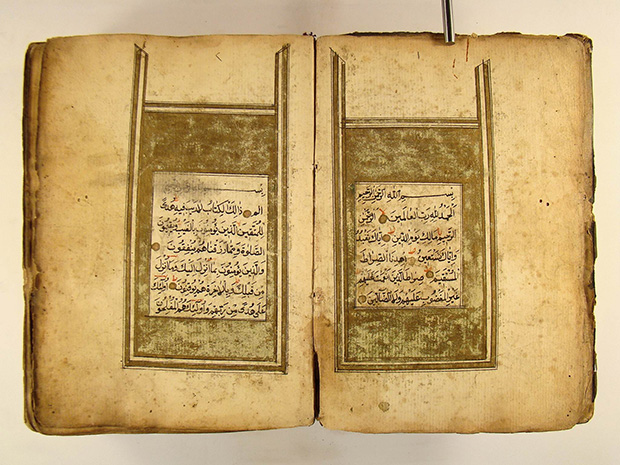 بسم الله الرحمن الرحيم
الحمد لله رب العالمين الرحمن
الرحيم مالك يوم الدين اياك نعبد
واياك نستعين اهدنا الصراط
المستقيم صراط الذين انعمت عليهم
غير المغضوب عليهم ولا الضالين
بسم
الم ذالك الكتاب لا ريب فيه هدى
للمتقين الذين يؤمنون بالغيب ويقيمون
الصلوة ومما رزقناهم ينفقون
والذين يؤمنون بما انزل اليك وما انزل
من قبلك وبالاخرة هم يوقنون اولئك
على هدى من ربهم واولئك هم المفلحون